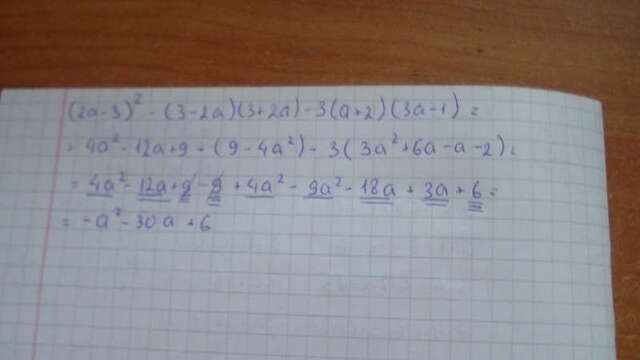 (2a-3)² - (3-2a)(3+2a) - 3(a+2)(3a-1) =
= 4a² - 12a + 9 - (9 - 4a²) - 3(3a² + 6a - a - 2) =
= 4a² - 12a + 9 - 9 + 4a² - 9a² - 18a + 3a + 6 =
= -a² - 30a + 6